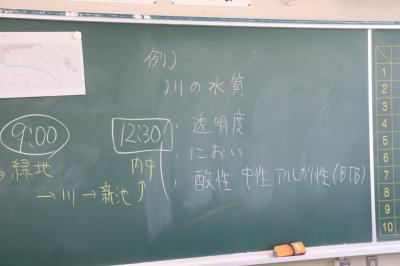 例)
川の水質
9:00
12:30
・透明度
緑地
内中
・におい
→川→新池
・酸性 中性 アルカリ性(BTB)
1
2
3
4
5
6
7
8
9
10